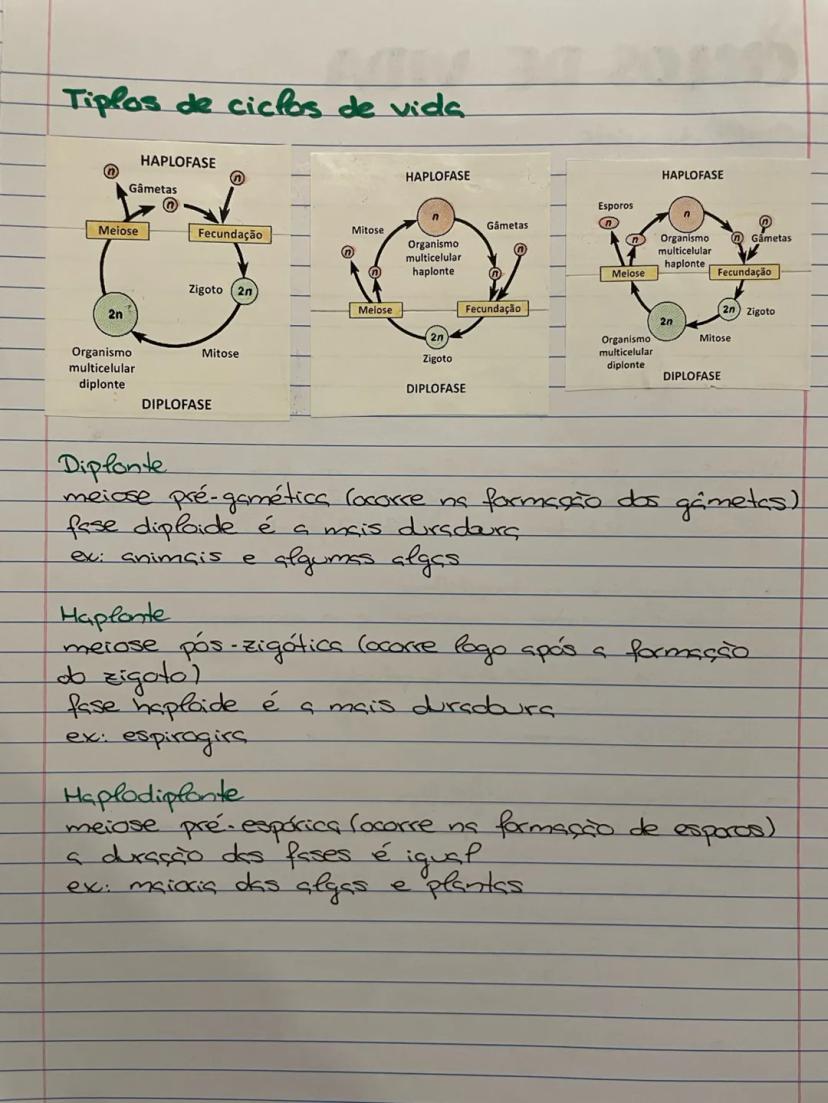 Tipos de ciclos de vida
HAPLOFASE
n
n
Gâmetas
n
Meiose
Fecundação
Zigoto
2n
2n
Organismo
multicelular
diplonte
Mitose
DIPLOFASE
HAPLOFASE
n
Mitose
Gâmetas
Organismo
multicelular
haplonte
n
n
n
n
Meiose
Fecundação
2n
Zigoto
DIPLOFASE
HAPLOFASE
Esporos
n
n
n
n
n
Gâmetas
Organismo
multicelular
haplonte
Meiose
Fecundação
2n
2n
Zigoto
Mitose
Organismo
multicelular
diplonte
DIPLOFASE
Diplonte
meiose pré-gamética (ocorre na formação dos gâmetas)
fase diploide é a mais duradura
ex: animais e algumas algas
Haplonte
meiose pós-zigótica (ocorre logo após a formação
do zigoto)
fase haploide é a mais duradoura
ex: espirogira
Haplodiplonte
meiose pré-espórica (ocorre na formação de esporos)
a duração das fases é igual
ex: maioria das algas e plantas